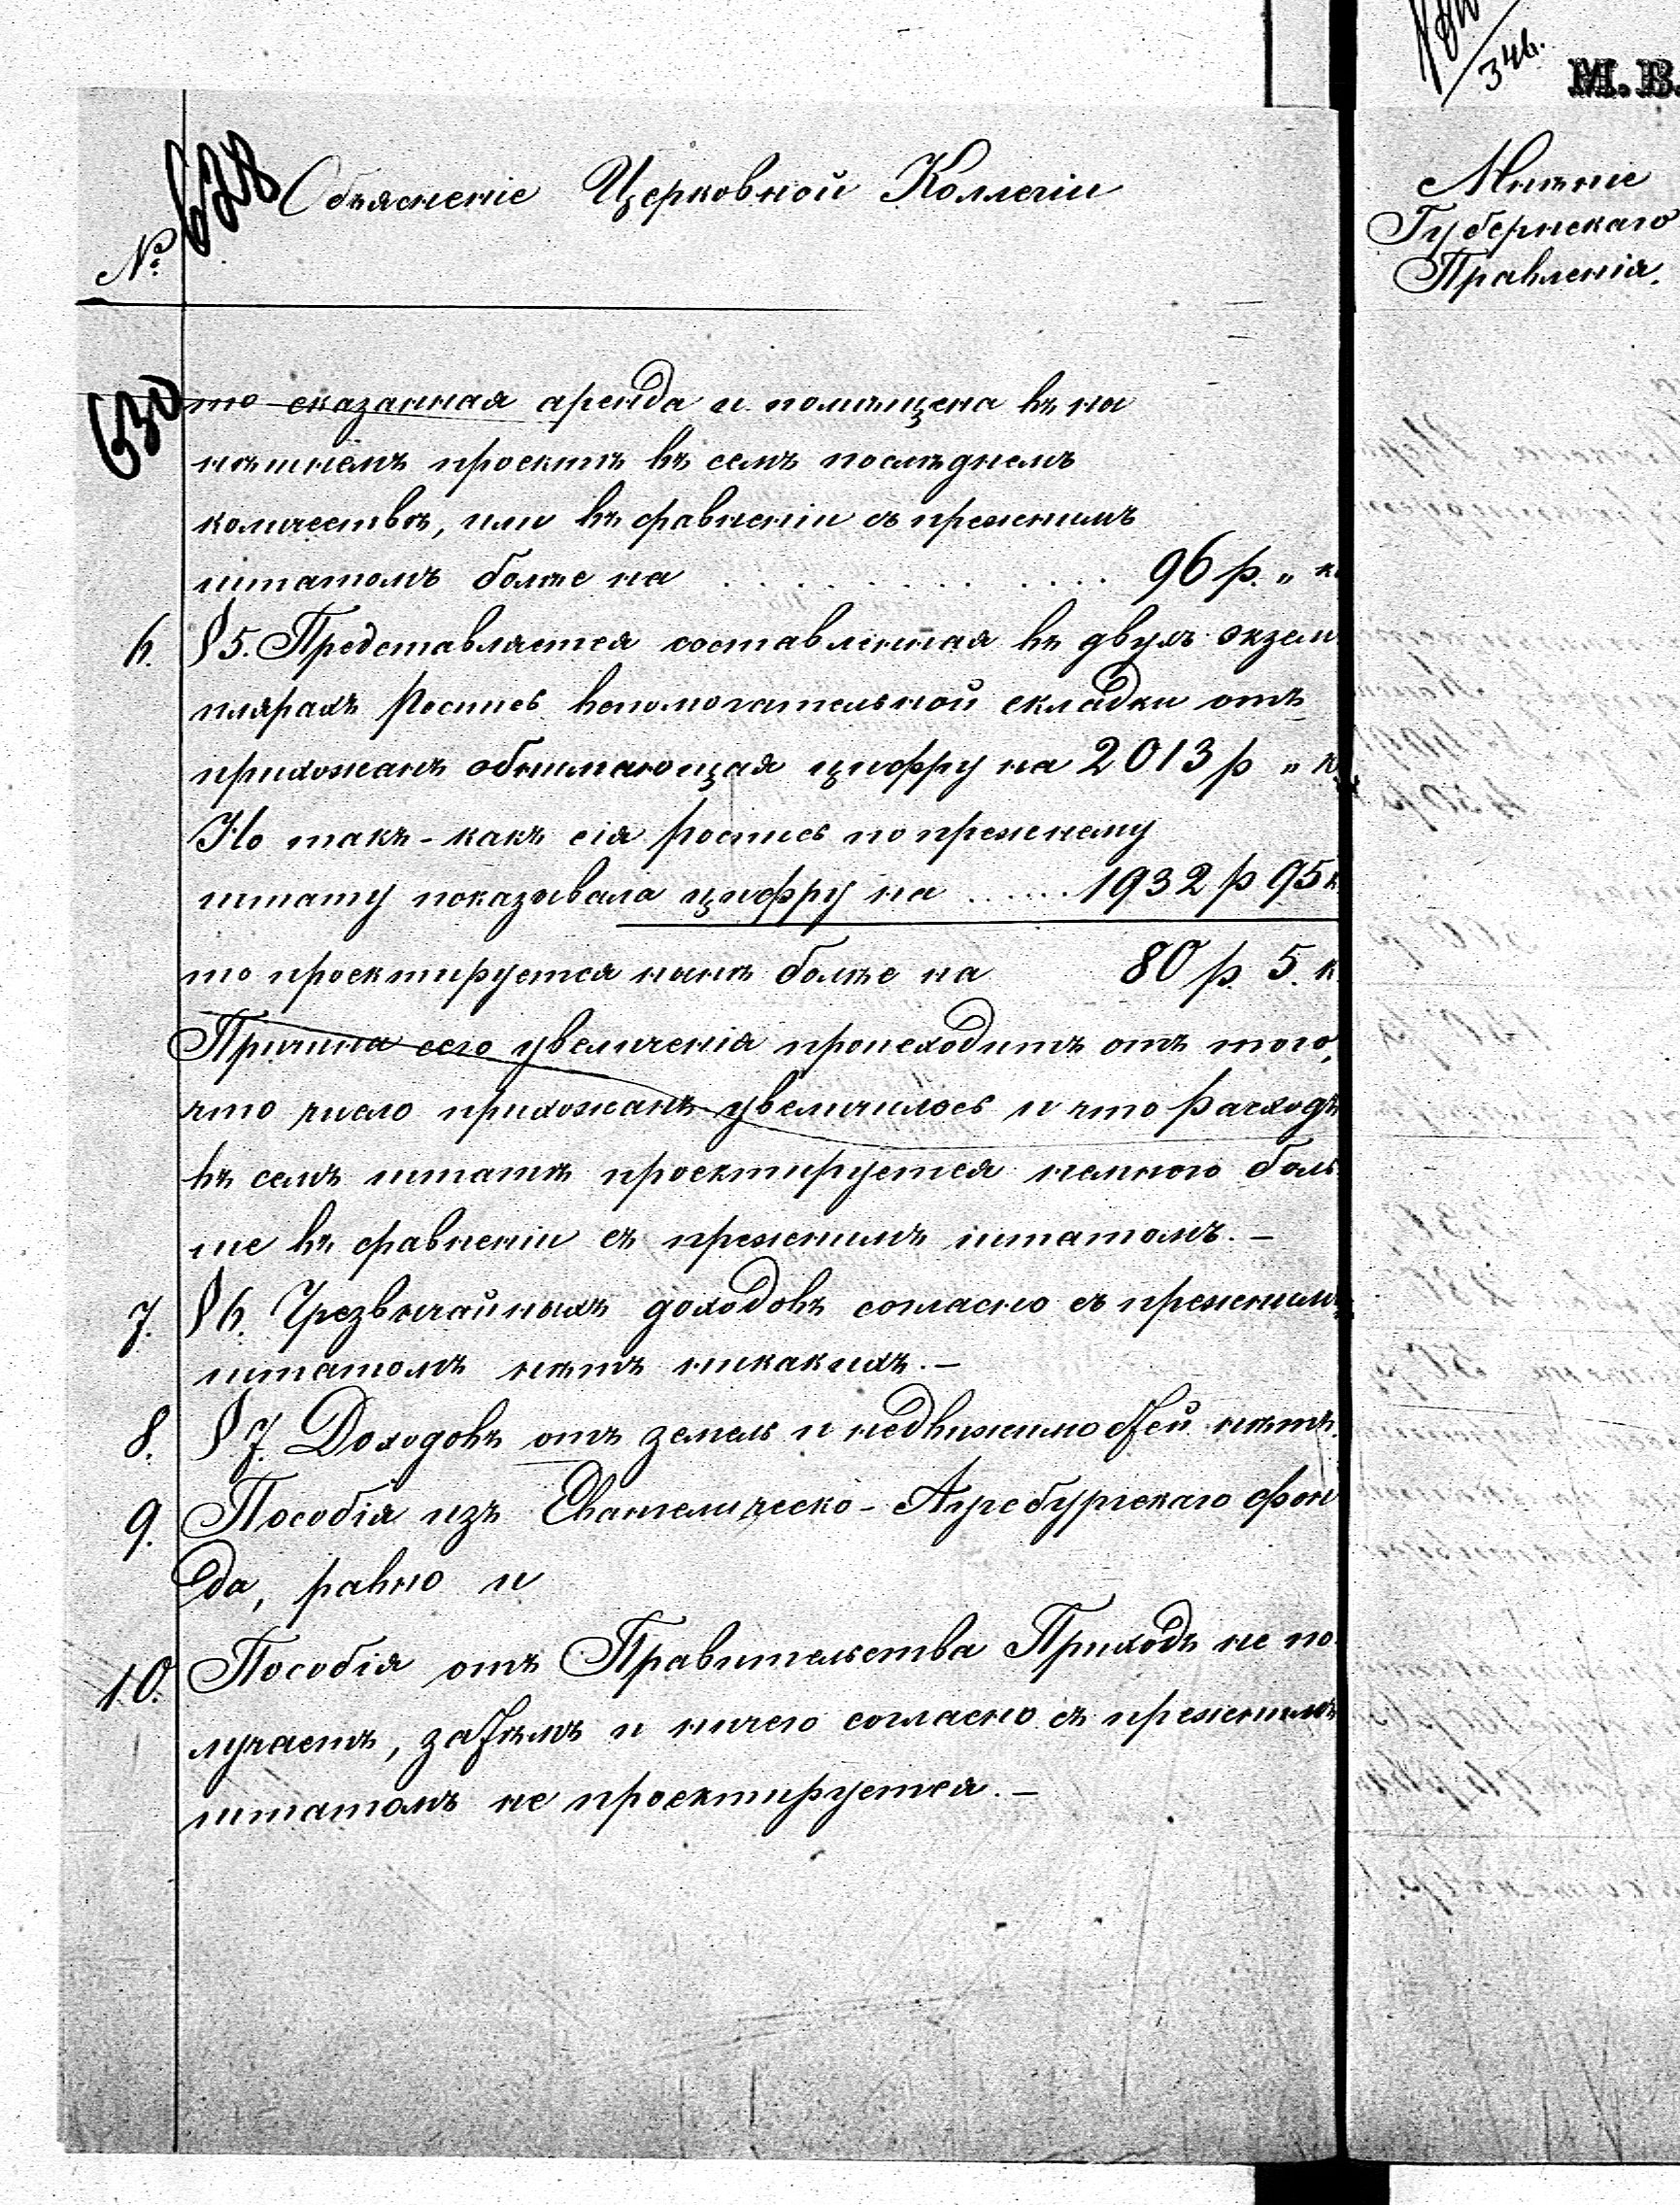 346.
М. В.
№ 628
Объясненіе Церковной Коллегіи
Мнѣніе
Губернскаго
Правленія.
630
то сказанная аренда и помѣщена въ ны
нѣшнемъ проектѣ въ семъ послѣднемъ
количествѣ, или въ сравненіи съ прежнимъ
штатомъ болѣе на . . . . . . . . . 96 р. „ к.
6. § 5. Представляется составленная въ двухъ экзем
плярахъ Роспись вспомогательной складки отъ
прихожанъ обнимающая цифру на 2013 р „ к.
Но такъ-какъ сія роспись по прежнему
штату показывала цифру на ...... 1932 р 95 к
то проектируется нынѣ болѣе на 80 р. 5. к.
Причина сего увеличенія происходитъ отъ того,
что число прихожанъ увеличилось и что расходъ
въ семъ штатѣ проектируется немного боль
ше въ сравненіи съ прежнимъ штатомъ. —
7. § 6. Чрезвычайныхъ доходовъ согласно съ прежнимъ
штатомъ нѣтъ никакихъ. —
8. § 7. Доходовъ отъ земель и недвижимостей нѣтъ.
9. Пособія изъ Евангелическо-Аугсбургскаго фон
да, равно и
10. Пособія отъ Правительства Приходъ не по
лучаетъ, затѣмъ и ничего согласно съ прежнимъ
штатомъ не проектируется. —